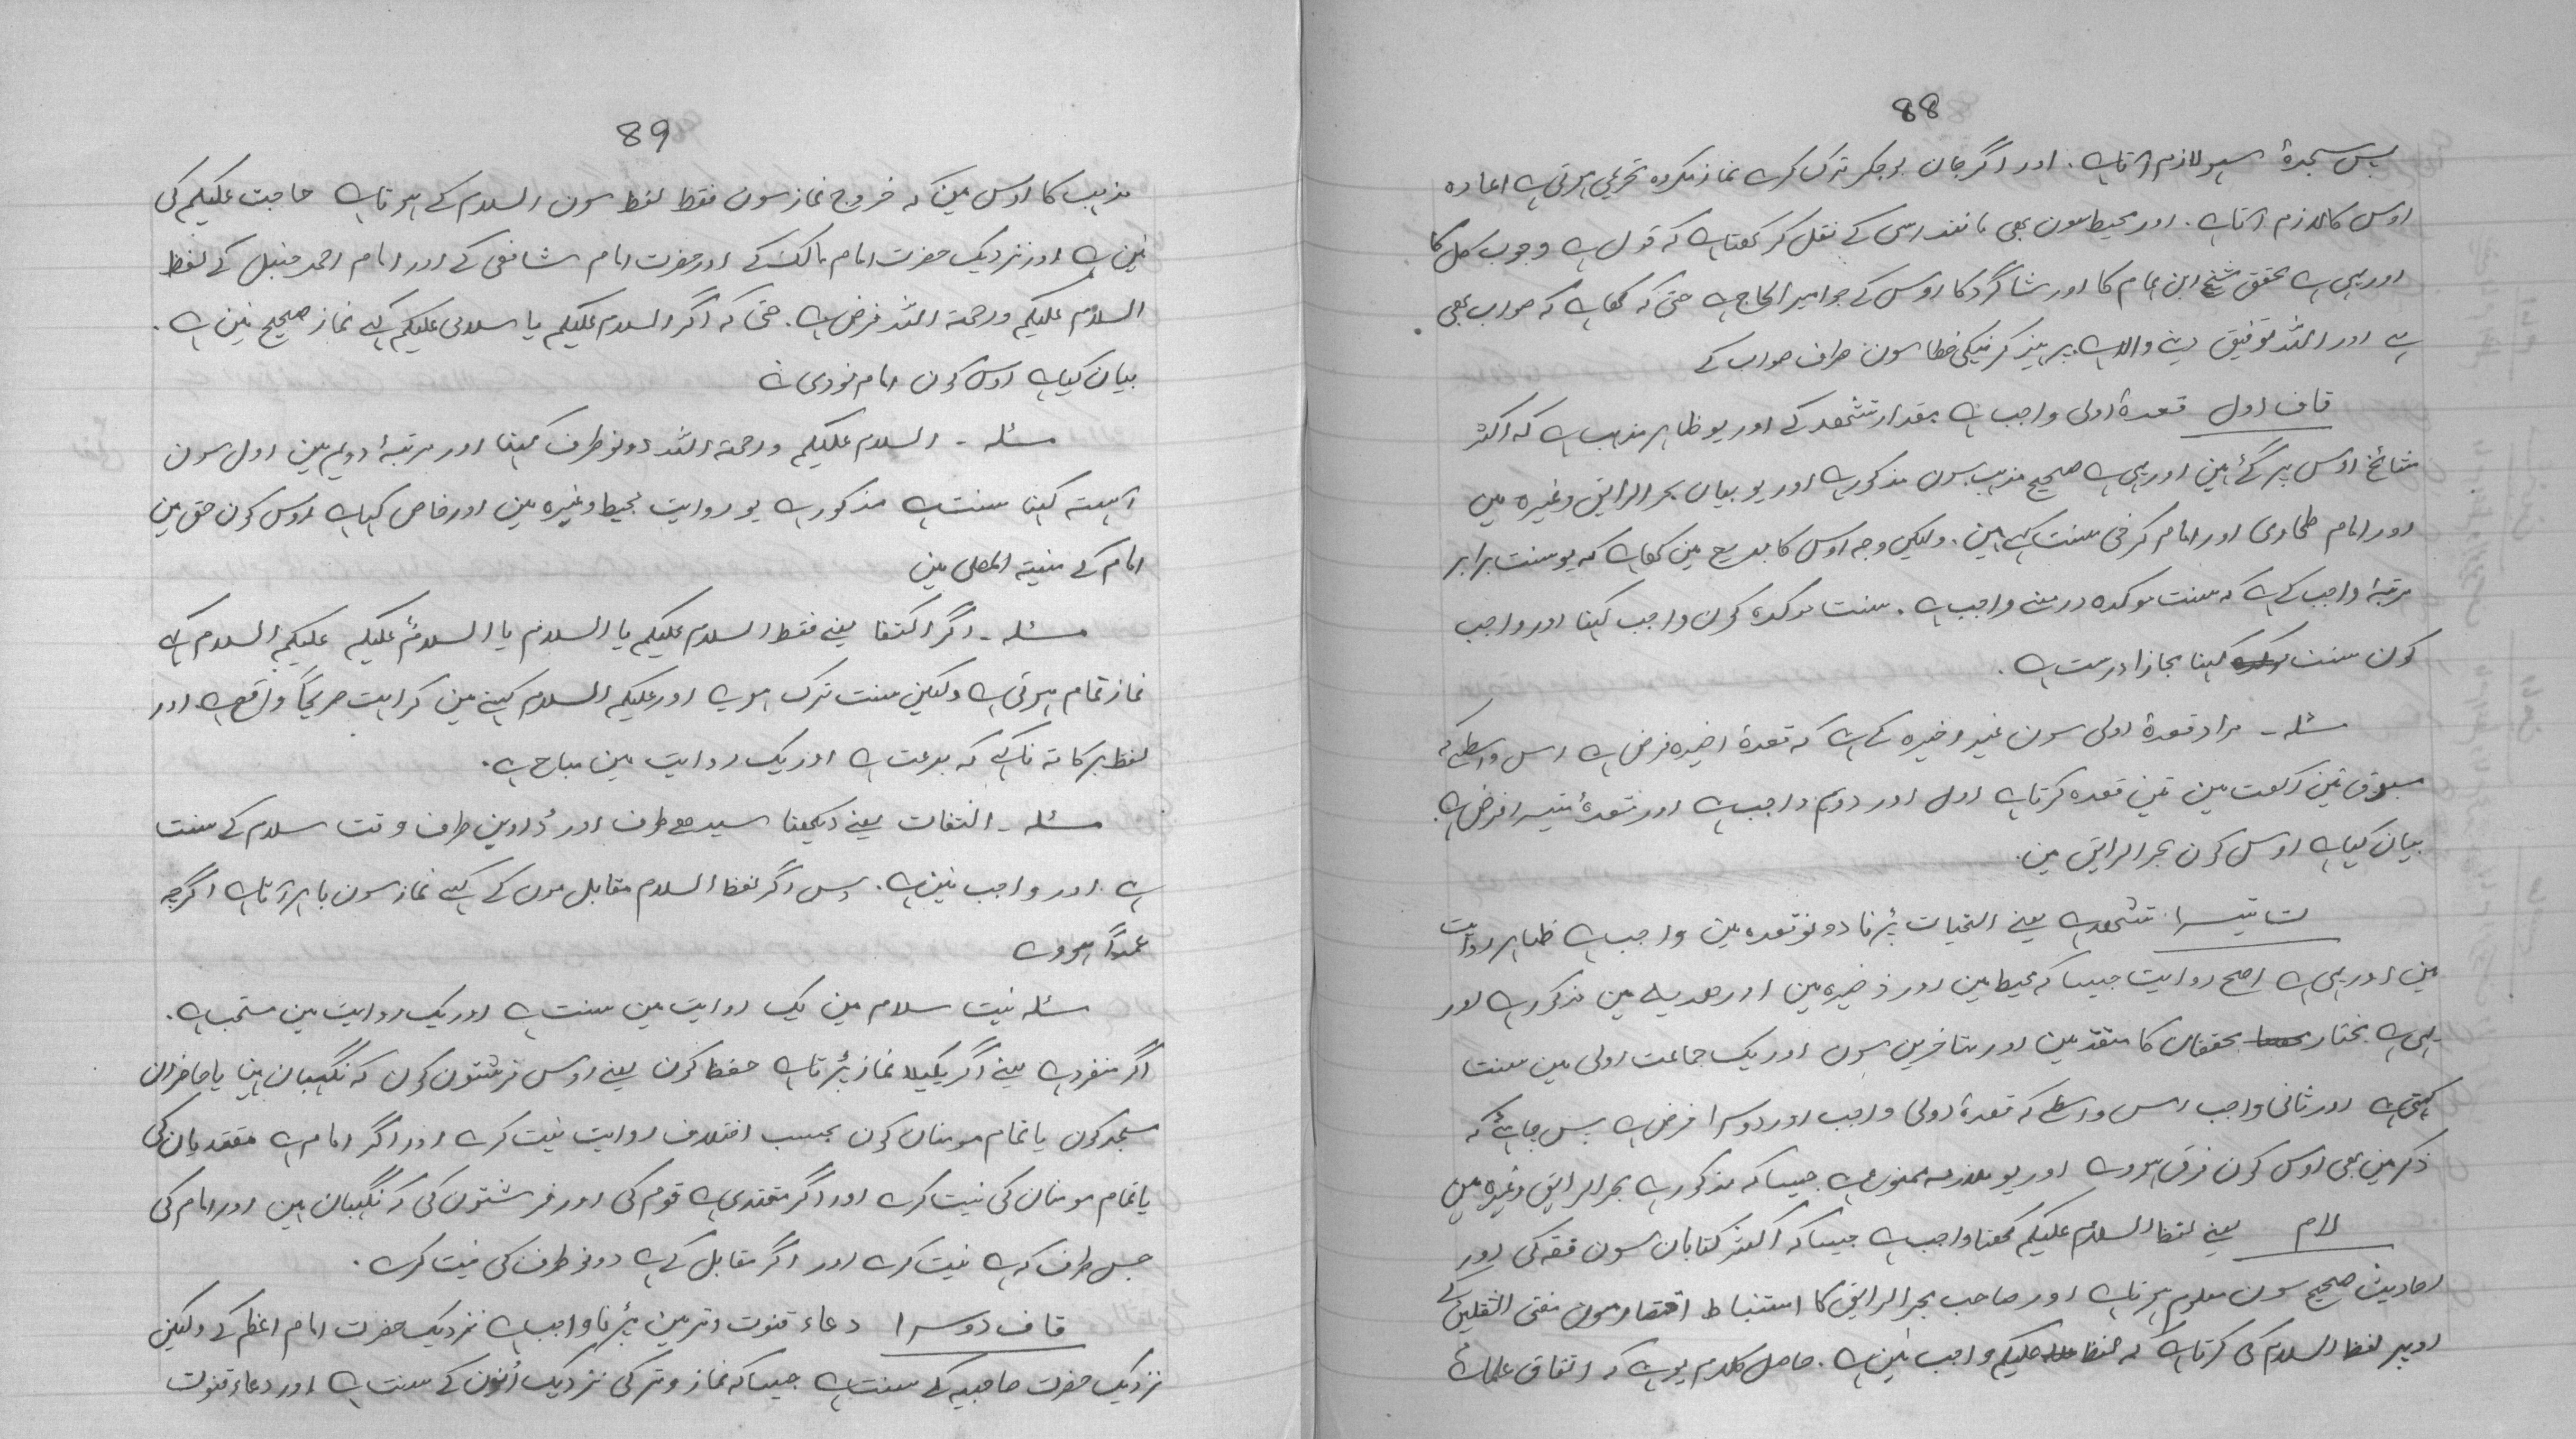 88
پس سجدۂ سہو لازم آتا ہے۔ اور اگر جان بوجکر ترک کرے نماز مکروہ تحریمی ہوتی ہے اعادہ
اوس کا لازم آتا ہے۔ اور محیط سون بھی مانند اسی کے نقل کر کھتا ہے کہ قول ہے وجوب کل کا
اور یہی ہے محقق شیخ ابن ہمام کا اور شاگرد کا اوس کے جو امیر الحاج ہے حتی کہ کھا ہے کہ صواب بھی
ہے اور اللہ توفیق دینے والا ہے پرہیز کرنیکی خطا سون طرف صواب کے
قاف اول قعدۂ اولی واجب ہے بمقدار تشھد کے اور یو ظاہر مذہب ہے کہ اکثر
مشائخ اوس پر گئے ہین اور یہی ہے صحیح مذہب سون مذکور ہے اور یو بیان بحر الرایق وغیرہ مین
اور امام طحاوی اور امام کرخی سنت کہے ہین۔ ولیکن وجہ اوس کا بدیع مین کھا ہے کہ یو سنت برابر
مرتبۂ واجب کے ہے کہ سنت موکدہ در معنے واجب ہے۔ سنت موکدہ کون واجب کہنا اور واجب
کون سنت کہنا مجازا درست ہے۔
مسئلہ۔ مراد قعدۂ اولی سون غیر اخیرہ کے ہے کہ قعدۂ اخیرہ فرض ہے اس واسطے کہ
مسبوق تین رکعت مین تین قعدہ کرتا ہے اول اور دوم واجب ہے اور قعدۂ تیسرا فرض ہے۔
بیان کیا ہے اوس کون بحر الرایق مین۔
ت تیسرا تشھد ہے یعنے التحیات پڑنا دونو قعدہ مین واجب ہے ظاہر روایت
مین اور یہی ہے اصح روایت جیسا کہ محیط مین اور ذخیرہ مین اور ھدیہ مین مذکور ہے اور
یہی ہے مختار محققان کا متقدمین اور متاخرین سون اور یک جماعت اولی مین سنت
کہتی ہے اور ثانی واجب اس واسطے کہ قعدۂ اولی واجب اور دوسرا فرض ہے پس چاہئے کہ
ذکر مین بھی اوس کون فرق ہووے اور یو ملازمہ ممنوع ہے جیسا کہ مذکور ہے بحر الرایق وغیرہ مین
لام یعنے لفظ السلام علیکم کھنا واجب ہے جیسا کہ اکثر کتابان سون فقہ کی اور
احادیث صحیح سون معلوم ہوتا ہے اور صاحب بحر الرایق کا استنباط اقتصار سون مفتی الثقلین کے
اوپر لفظ السلام کی کرتا ہے کہ لفظ علیکم واجب نین ہے۔ حاصل کلام یو ہے کہ اتفاق علمائے
89
مذہب کا اوس مین کہ خروج نماز سون فقط لفظ سون السلام کے ہوتا ہے حاجت علیکم کی
نین ہے اور نزدیک حضرت امام مالک کے اور حضرت امام شافعی کے اور امام احمد حنبل کے لفظ
السلام علیکم ورحمۃ اللہ فرض ہے۔ حتی کہ اگر السلام علیکم یا سلامی علیکم کہے نماز صحیح نین ہے۔
بیان کیا ہے اوس کون امام نووی نے
مسئلہ۔ السلام علیکم ورحمۃ اللہ دونو طرف کہنا اور مرتبۂ دویم مین اول سون
آہستہ کہنا سنت ہے مذکور ہے یو روایت محیط وغیرہ مین اور خاص کیا ہے اوس کون حق مین
امام کے منیۃ المصلی مین
مسئلہ۔ اگر اکتفا یعنے فقط السلام علیکم یا السلام یا السلامُ علیکم علیکم السلام کہے
نماز تمام ہوتی ہے ولیکن سنت ترک ہووے اور علیکم السلام کہنے مین کراہت صریحًا واقع ہے اور
لفظ برکاتہ نا کہے کہ بدعت ہے اور یک روایت مین مباح ہے۔
مسئلہ۔ التفات یعنے دیکھنا سیدھے طرف اور ڈاوین طرف وقت سلام کے سنت
ہے اور واجب نین ہے۔ پس اگر لفظ السلام مقابل مون کے کہے نماز سون باہر آتا ہے اگرچہ
عمداً ہووے
مسئلہ نیت سلام مین یک روایت مین سنت ہے اور یک روایت مین مستحب ہے۔
اگر منفرد ہے یعنے اگر یکیلا نماز پڑتا ہے حفظ کون یعنے اوس فرشتون کون کہ نگہبان ہین یا حاضران
مسجد کون یا تمام مومنان کون بحسب اختلاف روایت نیت کرے اور اگر امام ہے مقتدیان کی
یا تمام مومنان کی نیت کرے اور اگر مقتدی ہے قوم کی اور فرشتون کی کہ نگہبان ہین اور امام کی
جس طرف کہ ہے نیت کرے اور اگر مقابل کے ہے دونو طرف کی نیت کرے۔
قاف دوسرا دعاء قنوت وتر مین پڑنا واجب ہے نزدیک حضرت امام اعظم کے ولیکن
نزدیک حضرت صاحبیہ کے سنت ہے جیسا کہ نماز وتر کی نزدیک اُنون کے سنت ہے اور دعاء قنوت